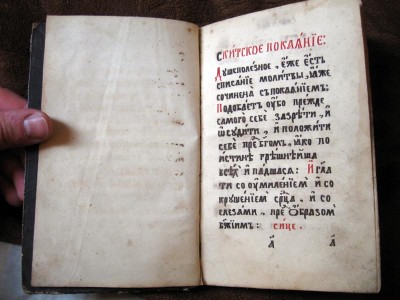 Ски́тское покая́нїе:
Душеполезное, є́же є҆́сть
списанїе молитвы, ꙗ҆́же
сочинена съ покаѧнїемъ:
Подоба́етъ ѹ҆бо прежде
самого себе зазрѣти, и҆
ѡ҆суди́ти, и҆ положи́ти
себѐ пред̾ бг҃омъ, ꙗ҆́ко по
и҆стинѣ грѣшнѣйша
всѣ́хъ и҆ падшасѧ: И҆ гл҃а
ти со ѹ҆миле́нїемъ и҆ со
крꙋше́нїемъ ср҃дца, и҆ со
слеза́ми, пре́ ѻ҆́бразомъ
бж҃їимъ: си́це.
а҃ а҃